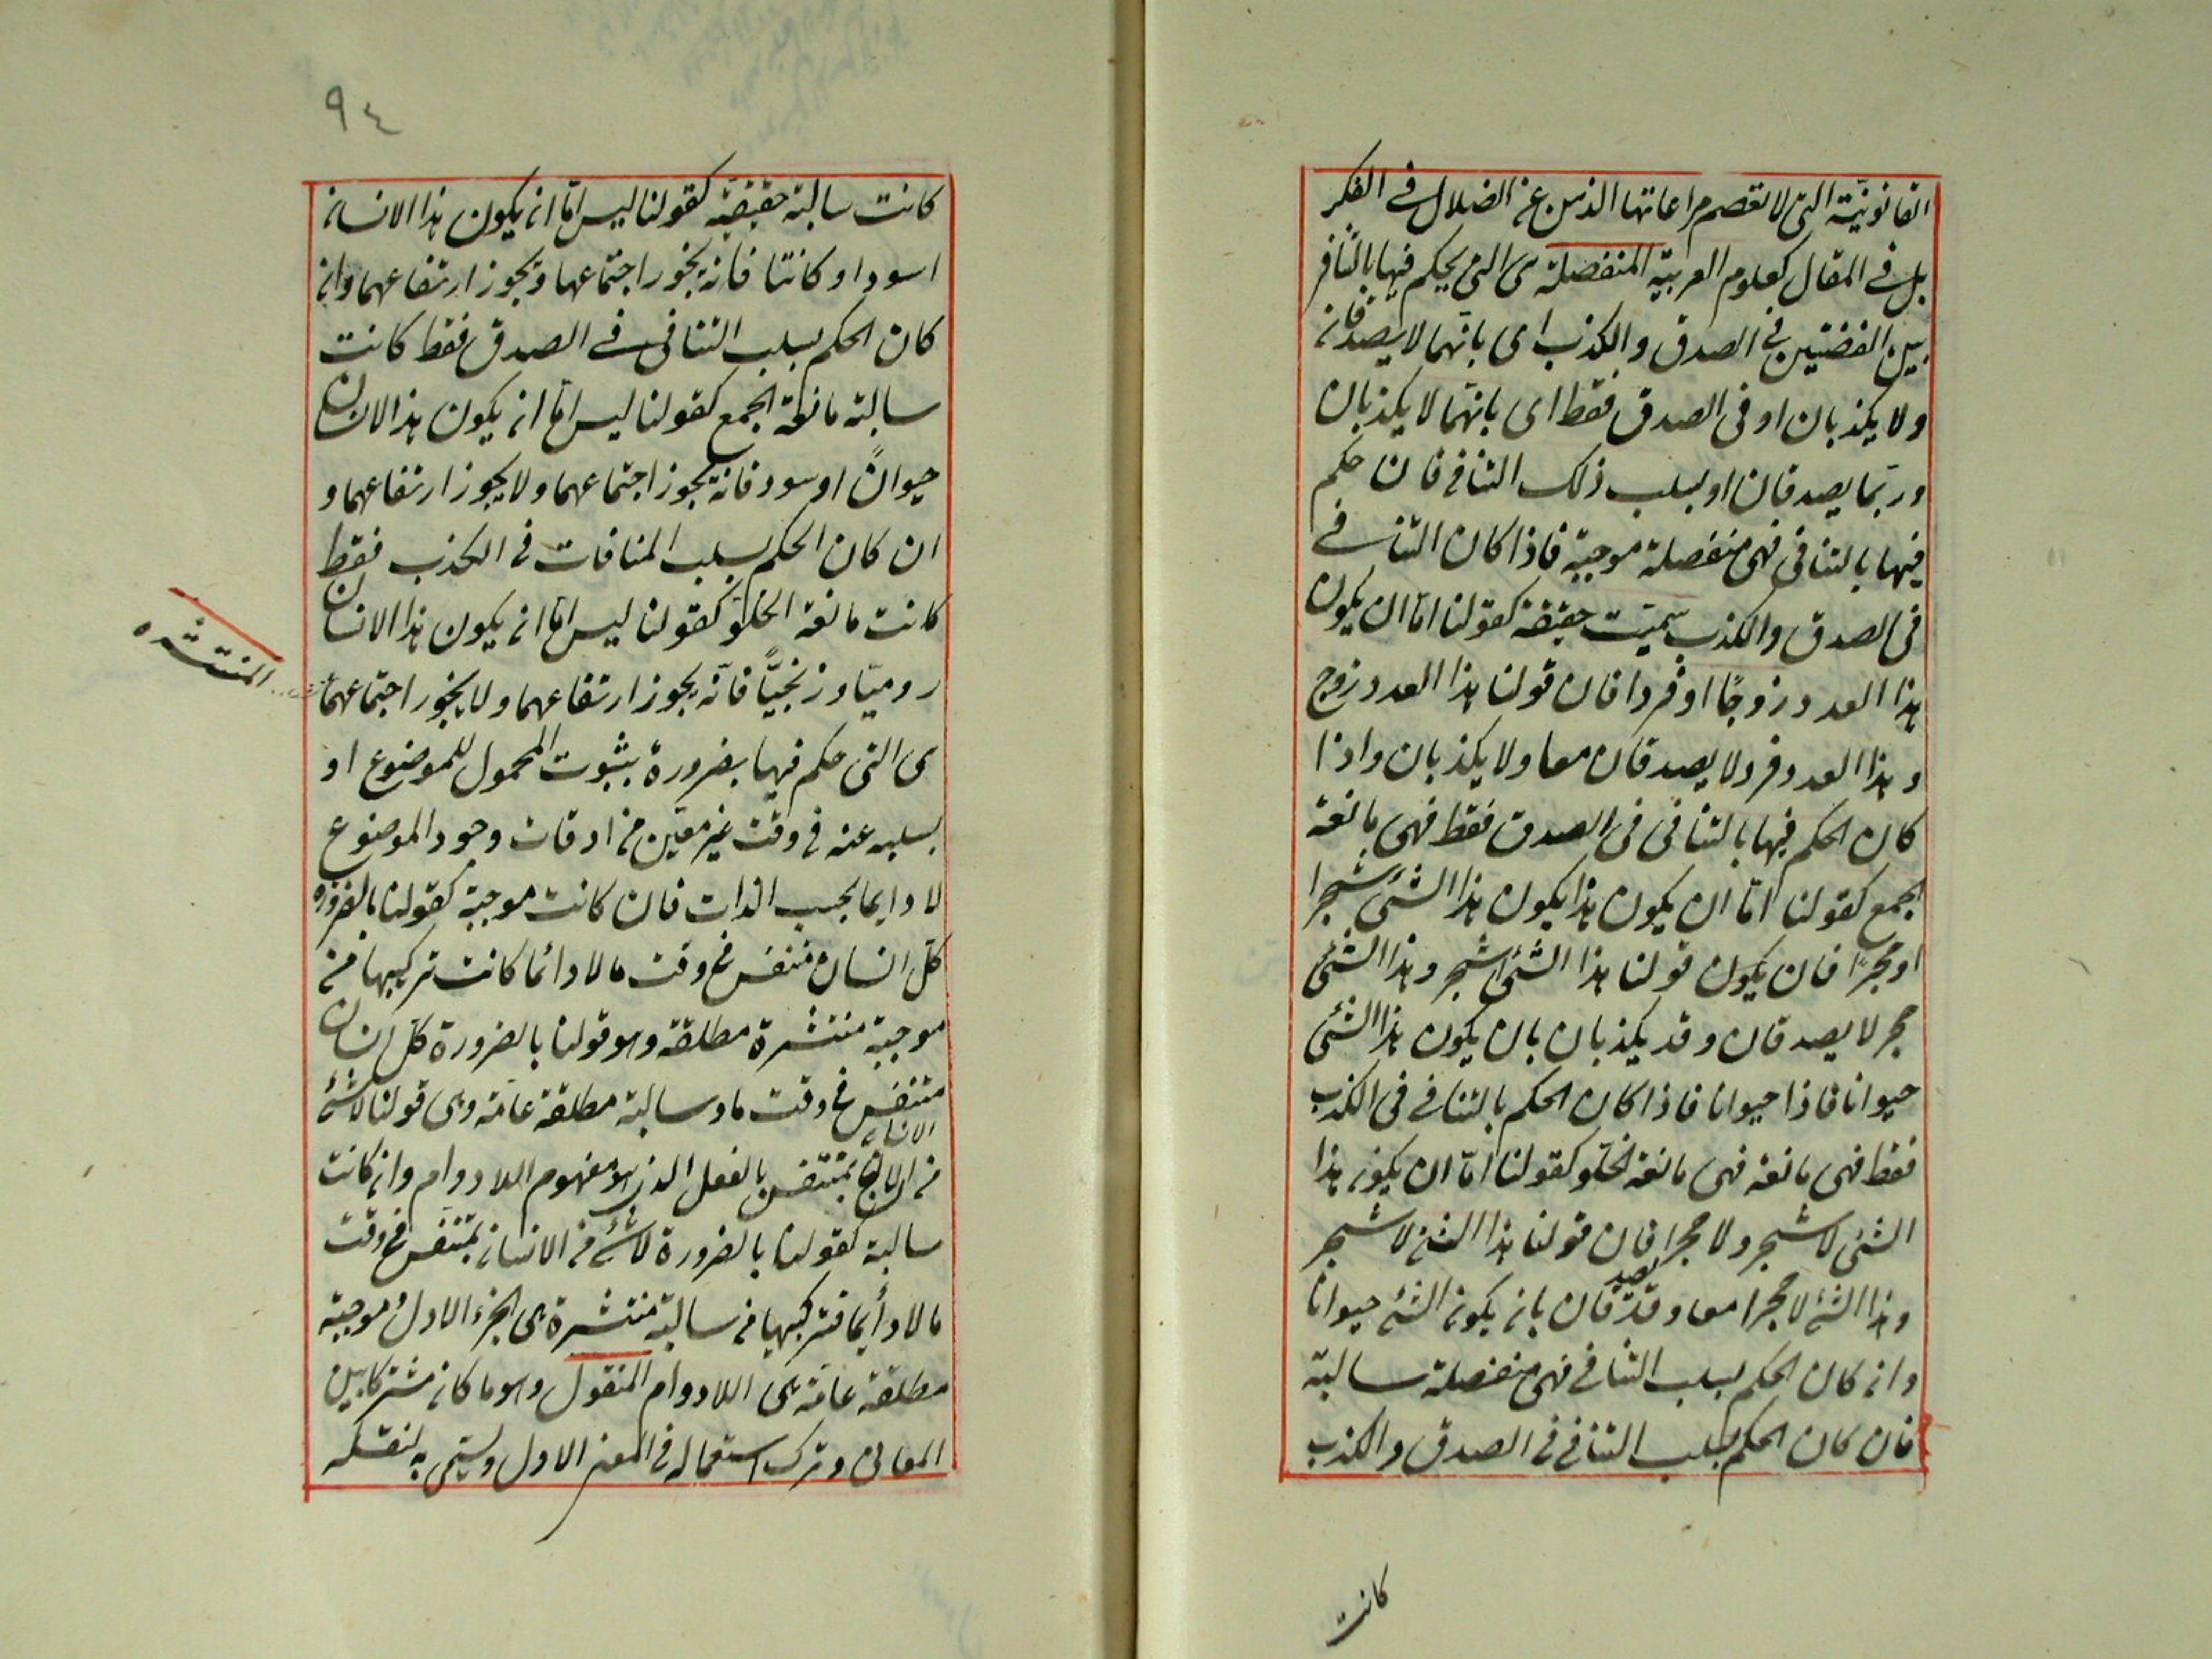 القانونيّة التى لا تعصم مراعاتها الذهن عن الضلال فى الفكر
بل فى المقال كعلوم العربية المنفصلة هى التى يحكم فيها بالتنافر
بين القضيتين فى الصدق والكذب اى بانهما لا يصدقان
ولا يكذبان او فى الصدق فقط اى بانهما لا يكذبان
وربما يصدقان او بسلب ذلك التنافى فان حكم
فيها بالتنافى فهى منفصلة موجبة فاذا كان التنافى
فى الصدق والكذب سميت حقيقة كقولنا امّا ان يكون
هذا العدد زوجًا او فردا فان قولنا هذا العدد زوج
وهذا العدد فرد لا يصدقان معا ولا يكذبان واذا
كان الحكم فيها بالتنافى فى الصدق فقط فهى مانعة
الجمع كقولنا امّا ان يكون هذا يكون هذا الشئ شجرا
او حجرًا فان يكون قولنا هذا الشئ شجر وهذا الشئ
حجر لا يصدقان وقد يكذبان بان يكون هذا الشئ
حيوانا فاذا حيوانا فاذا كان الحكم بالتنافى فى الكذب
فقط فهى مانعة فهى مانعة الخلو كقولنا امّا ان يكون هذا
الشئ لا شجر ولا حجرا فان قولنا هذا الشئ لا شجر
وهذا الشئ لا حجرا معا وقد يصدقان بان يكون الشئ حيوانا
وان كان الحكم بسلب التنافى فهى منفصلة سالبة
فان كان الحكم بسلب التنافى فى الصدق والكذب
كانت
٩٤
كانت سالبة حقيقيّة كقولنا ليس امّا ان يكون هذا الانسان
اسود او كاتبا فانه يجوز اجتماعهما ويجوز ارتفاعهما وان
كان الحكم بسلب التنافى فى الصدق فقط كانت
سالبة مانعة الجمع كقولنا ليس امّا ان يكون هذا الانسان
حيوانًا او اسود فانه يجوز اجتماعهما ولا يجوز ارتفاعهما و
ان كان الحكم بسلب المنافات فى الكذب فقط
كانت مانعة الخلو كقولنا ليس امّا ان يكون هذا الانسان
روميّا او زنجيًّا فانّه يجوز ارتفاعهما ولا يجوز اجتماعهما
المنتشره
هى التى حكم فيها بضرورة بثبوت المحمول للموضوع او
بسلبه عنه فى وقت غير معيّن من اوقات وجود الموضوع
لا دايما بحسب الذات فان كانت موجبة كقولنا بالضرورة
كلّ انسان متنفس فى وقت ما لا دائما كانت تركيبها من
موجبة منتشرة مطلقة وهو قولنا بالضرورة كلّ انسان
متنفس فى وقت ما وسالبة مطلقة عامّة وهى قولنا لا شئ
من الانسان بمتنفس بالفعل الذى هو مفهوم اللادوام وان كانت
سالبة كقولنا بالضرورة لا شئ من الانسان بمتنفس فى وقت
ما لا دأيما فتركيبها من سالبة منتشرة هى الجزء الاول وموجبة
مطلقة عامّة هى اللادوام المنقول وهو ما كان مشتركا بين
المعانى وترك استعماله فى المعنى الاول ويسمّى به لنقله